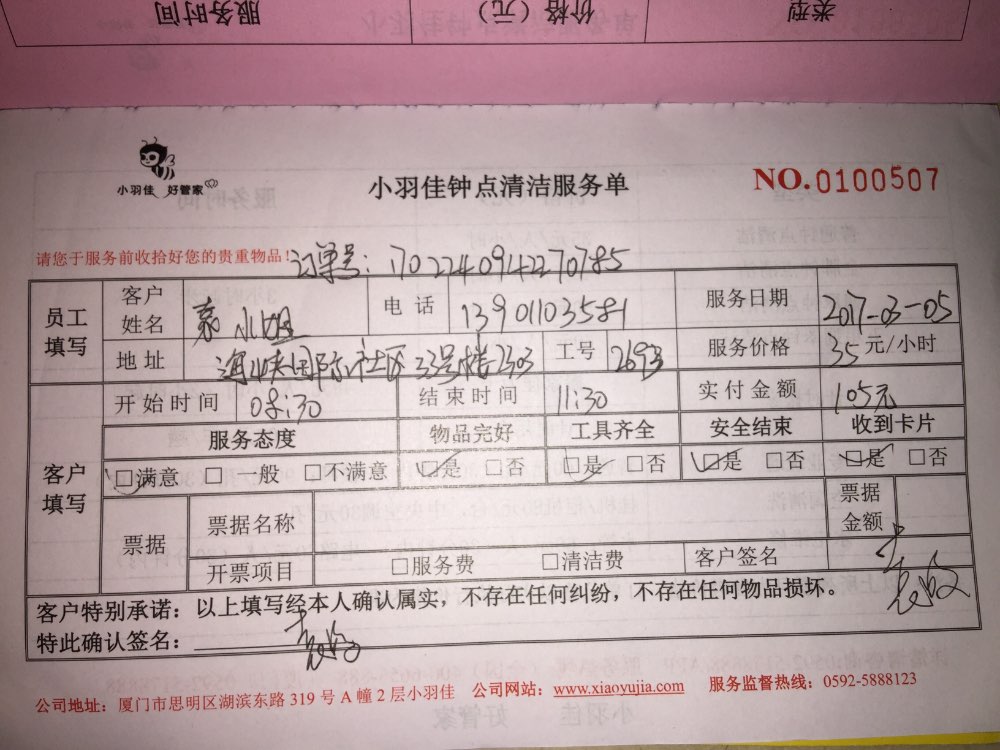 服务时间 价格（元） 类型
小羽佳 好管家
小羽佳钟点清洁服务单
NO.0100507
请您于服务前收拾好您的贵重物品！订单号：1702240942270785
员工填写 客户姓名 袁小姐 电话 13901103581 服务日期 2017-03-05
地址 海峡国际社区33号楼2303 工号 2693 服务价格 35元/小时
开始时间 08:30 结束时间 11:30 实付金额 105元
客户填写 服务态度 物品完好 工具齐全 安全结束 收到卡片
□满意 □一般 □不满意 □是 □否 □是 □否 □是 □否 □是 □否
票据 票据名称 票据金额
开票项目 □服务费 □清洁费 客户签名
客户特别承诺：以上填写经本人确认属实，不存在任何纠纷，不存在任何物品损坏。
特此确认签名：
公司地址：厦门市思明区湖滨东路319号A幢2层小羽佳 公司网站：www.xiaoyujia.com 服务监督热线：0592-5888123